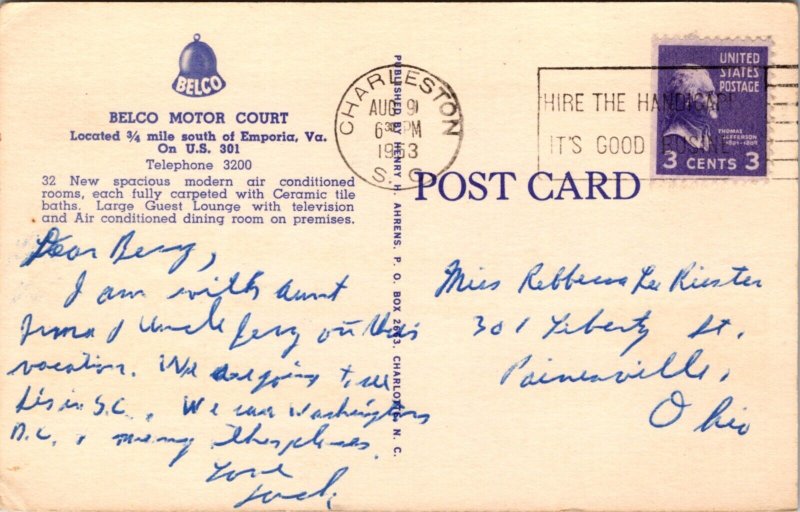 BELCO
BELCO MOTOR COURT
Located ¾ mile south of Emporia, Va.
On U.S. 301
Telephone 3200
32 New spacious modern air conditioned
rooms, each fully carpeted with Ceramic tile
baths. Large Guest Lounge with television
and Air conditioned dining room on premises.
Dear
I am with aunt
Irma & Uncle Jerry on
vacation. We are going to see
in S.C. We saw Washington
D.C. & many places.
Love
PUBLISHED BY HENRY H. AHRENS. P. O. BOX 2673, CHARLOTTE, N. C.
CHARLESTON
AUG 9
6 30 PM
1953
S. C.
HIRE THE HANDICAP
IT'S GOOD BUSINE
UNITED
STATES
POSTAGE
THOMAS
JEFFERSON
3 CENTS 3
POST CARD
Miss Rebbecca Lee Riester
301 Liberty St.
Painesville,
Ohio